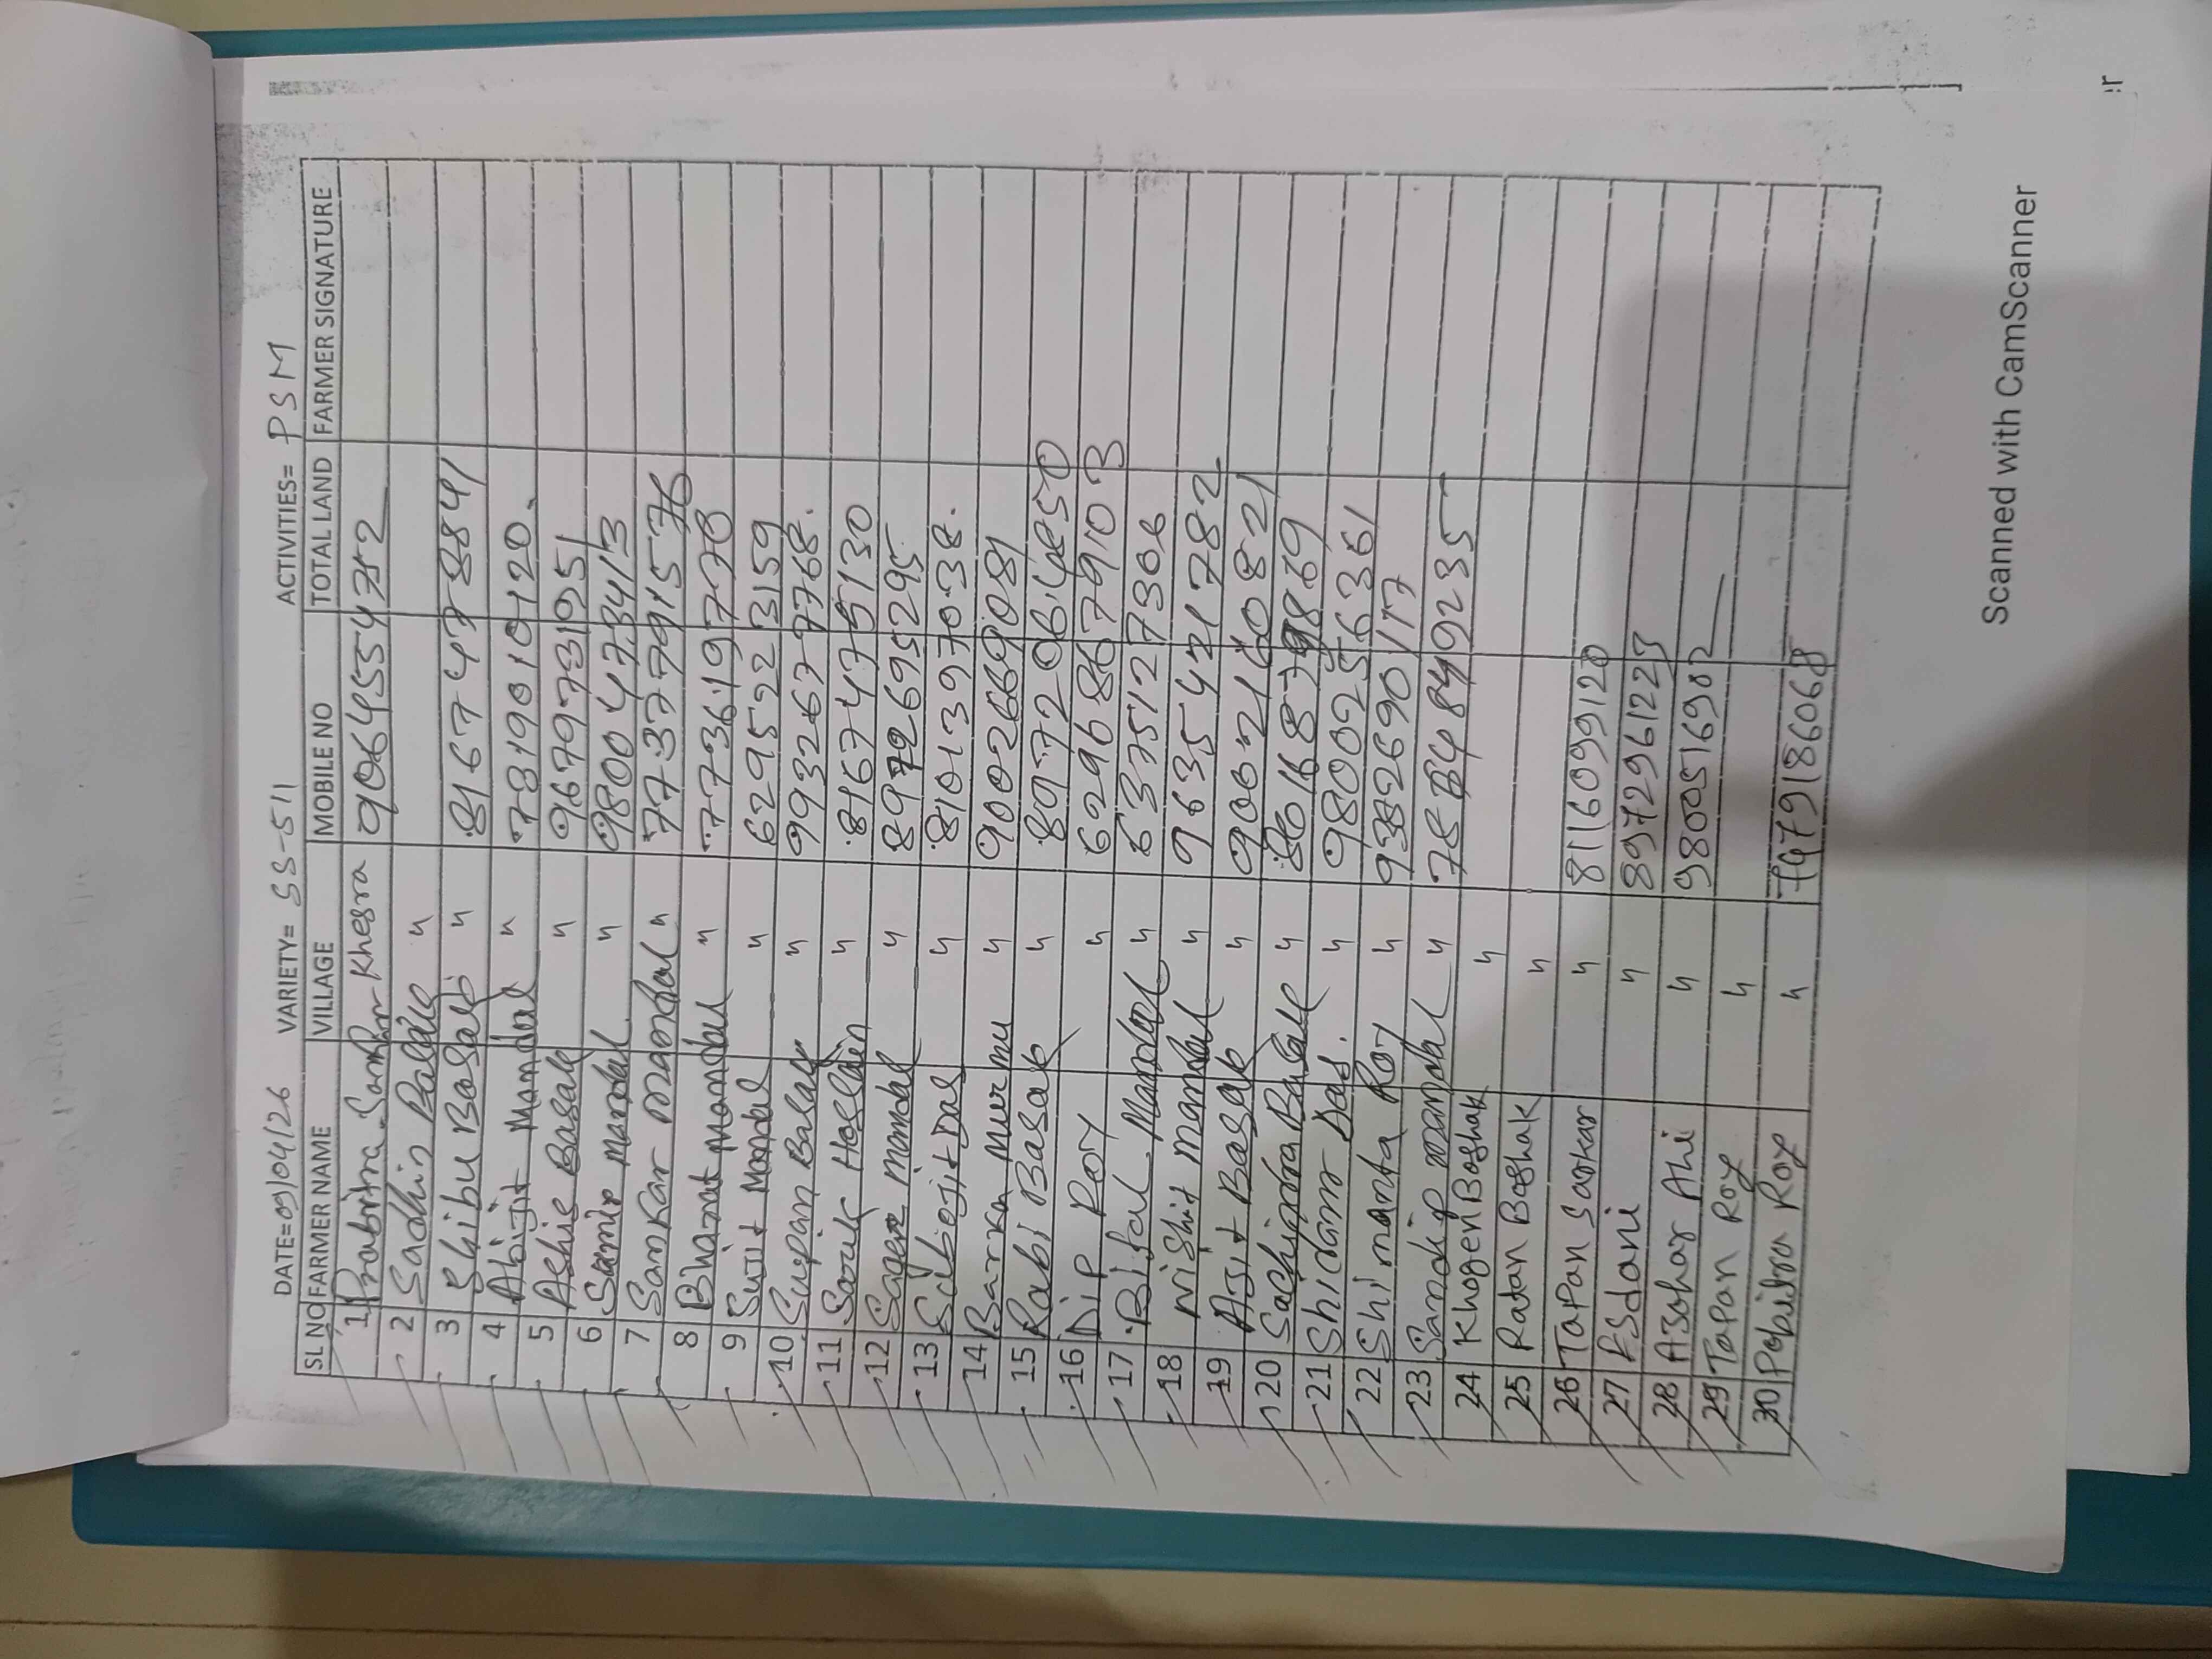 DATE=09/04/26 VARIETY= SS-511 ACTIVITIES= PSM
SL NO FARMER NAME VILLAGE MOBILE NO TOTAL LAND FARMER SIGNATURE
1 Prabitra Sarkar Khesra 9064554752
2 Sadhin "
3 Shibu Basak " 8167747884
4 Abijit Mandal " 7819010120.
5 Ashis Basak " 9679731951
6 Samir Mandal " 9800473413
7 Sankar Mandal "
8 Bharat Mandal " 7736197778
9 Sujit Mandal " 6295223159
10 Supan Basak " 9932677768.
11 Hossain " 8167475130
12 Sagar Mandal " 8972695295
13 Subojit Das " 8101397038.
14 Barka Murmu " 9002669081
15 Rabi Basak "
16 Dip Roy " 6296867910
17 Mandal " 6375127306
18 Nishit Mandal " 9635421782
19 Ajit Basak " 9002160821
20 Sachindra Basak "
21 Shidam Das. " 9800256361
22 Shimanta Roy " 9382690117
23 Sandip Mandal "
24 Khogen Boshak "
25 Ratan Boshak "
26 TaPan Sarkar " 8116099120
27 "  8972961223
28 Azohar Ali " 9800516902
29 Tapan Roy "
30 Pobitra Roy " 7479186068
Scanned with CamScanner